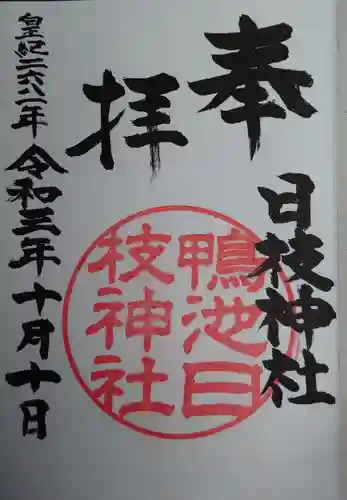 奉拝
日枝神社
鴨池日枝神社
皇紀二六八一年
令和三年十月十日